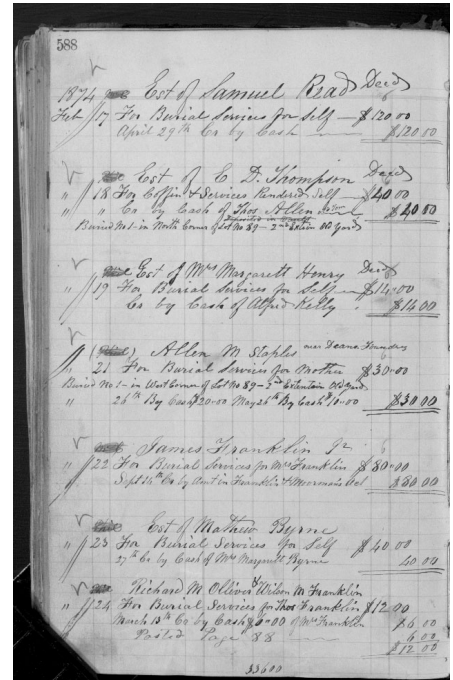 588
1874 Est of Samuel Read Decd
Feb 17 For Burial Services for Self — $120.00
April 29th Cr by Cash $120.00
Est of E. D. Thompson Decd
" 18 For Coffin & Services Rendered Self — $40.00
" " Cr. by Cash of Thos Allen $40.00
Buried No 1 - in North Corner of Lot No 89 - 2nd Old Yard
Est of Mrs Margarett Henry Decd
" 19 For Burial Services for Self — $14.00
Cr by Cash of Alfred Kelly. $14.00
Allen M Staples near Deane Foundry
" 21 For Burial Services for Mother $30.00
Buried No 1 - in West Corner of Lot No 89 - 2nd Old Yard
" 26th By Cash $20.00 May 26th By Cash $10.00 $30.00
James Franklin Jr
" 22 For Burial Services for Mrs Franklin $80.00
Sept 14th Cr by Amt in Franklin & $80.00
Est of Mathew Byrne
" 23 For Burial Services for Self $40.00
27th Cr by Cash of Mrs Margarett Byrne 40.00
Richard M Olliver & Wilson M Franklin
" 24 For Burial Services for Thos Franklin $12.00
March 13th Cr by Cash of Mrs Franklin $6.00
Posted Page 88 6.00
$12.00
33600